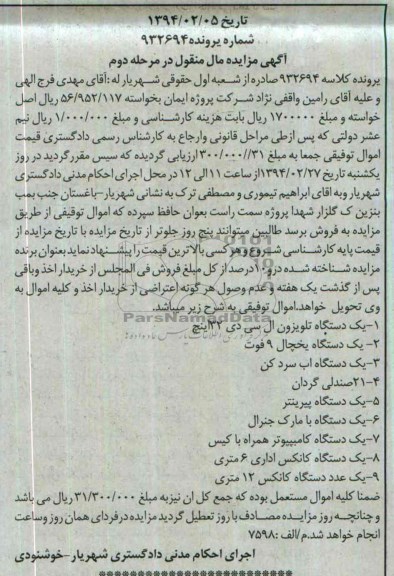 تاریخ ۱۳۹۴/۰۲/۰۵
شماره پرونده ۹۳۲۶۹۴
آگهی مزایده مال منقول در مرحله دوم
پرونده کلاسه ۹۳۲۶۹۴ صادره از شعبه اول حقوقی شهریار له: آقای مهدی فرج الهی
و علیه آقای رامین واقفی نژاد شرکت پروژه ایمان بخواسته ۵۶/۹۵۲/۱۱۷ ریال اصل
خواسته و مبلغ ۱۷۰۰۰۰۰ ریال بابت هزینه کارشناسی و مبلغ ۱/۰۰۰/۰۰۰ ریال نیم
عشر دولتی که پس ازطی مراحل قانونی وارجاع به کارشناس رسمی دادگستری قیمت
اموال توقیفی جمعا به مبلغ ۳۱/۳۰۰/۰۰۰ ارزیابی گردیده که سپس مقرر گردید در روز
یکشنبه تاریخ ۱۳۹۴/۰۲/۲۷ از ساعت ۱۱الی ۱۲ در محل اجرای احکام مدنی دادگستری
شهریار وبه اقای ابراهیم تیموری و مصطفی ترک به نشانی شهریار-باغستان جنب پمپ
بنزین ک گلزار شهدا پروژه سمت راست بعوان حافظ سپرده که اموال توقیفی از طریق
مزایده به فروش برسد طالبین میتوانند پنج روز جلوتر از تاریخ مزایده با تاریخ مزایده از
قیمت پایه کارشناسی شروع و هرکسی بالاترین قیمت را پیشنهاد نماید بعنوان برنده
مزایده شناخته شده درو۱۰درصد از کل مبلغ فروش فی المجلس از خریدار اخذ وباقی
پس از گذشت یک هفته و عدم وصول هر گونه اعتراضی از خریدار اخذ و کلیه اموال به
وی تحویل خواهد.اموال توقیفی به شرح زیر میباشد.
۱-یک دستگاه تلویزون ال سی دی ۳۲اینچ
۲- یک دستگاه یخچال ۹ فوت
۳-یک دستگاه اب سرد کن
۴-۲۱صندلی گردان
۵-یک دستگاه پیرینتر
۶-یک دستگاه با مارک جنرال
۷-یک دستگاه کامپیوتر همراه با کیس
۸-یک دستگاه کانکس اداری ۶ متری
۹-یک عدد دستگاه کانکس ۱۲ متری
ضمنا کلیه اموال مستعمل بوده که جمع کل ان نیزبه مبلغ ۳۱/۳۰۰/۰۰۰ ریال می باشد
و چنانچه روز مزایده مصادف با روز تعطیل گردید مزایده درفردای همان روز وساعت
انجام خواهد شد.م/الف :۷۵۹۸
اجرای احکام مدنی دادگستری شهریار-خوشنودی
ParsNamadData